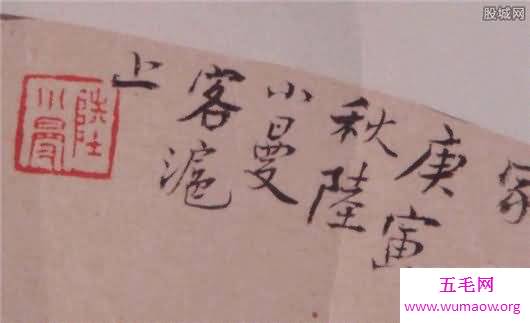 庚寅
秋陸
小曼
客滬
上
陸
小曼
股城网
五毛网
www.wumaow.org